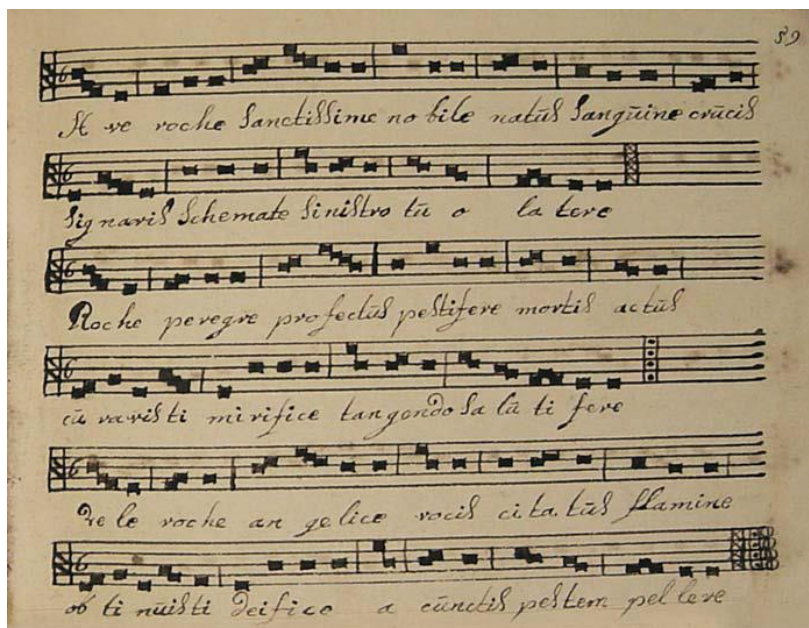 89
A ve roche Sanctissime no bile natūs Sangūine crūcis
Sig naris Schemate Sinistro tū o la tere
Roche peregre profectūs pestifere mortis actūs
cū raristi mirifice tangendo Sa lū ti fere
Ve le roche an gelice vocis ci ta tūs flamine
ob ti nūisti deifico a cūnctis pestem pel lere